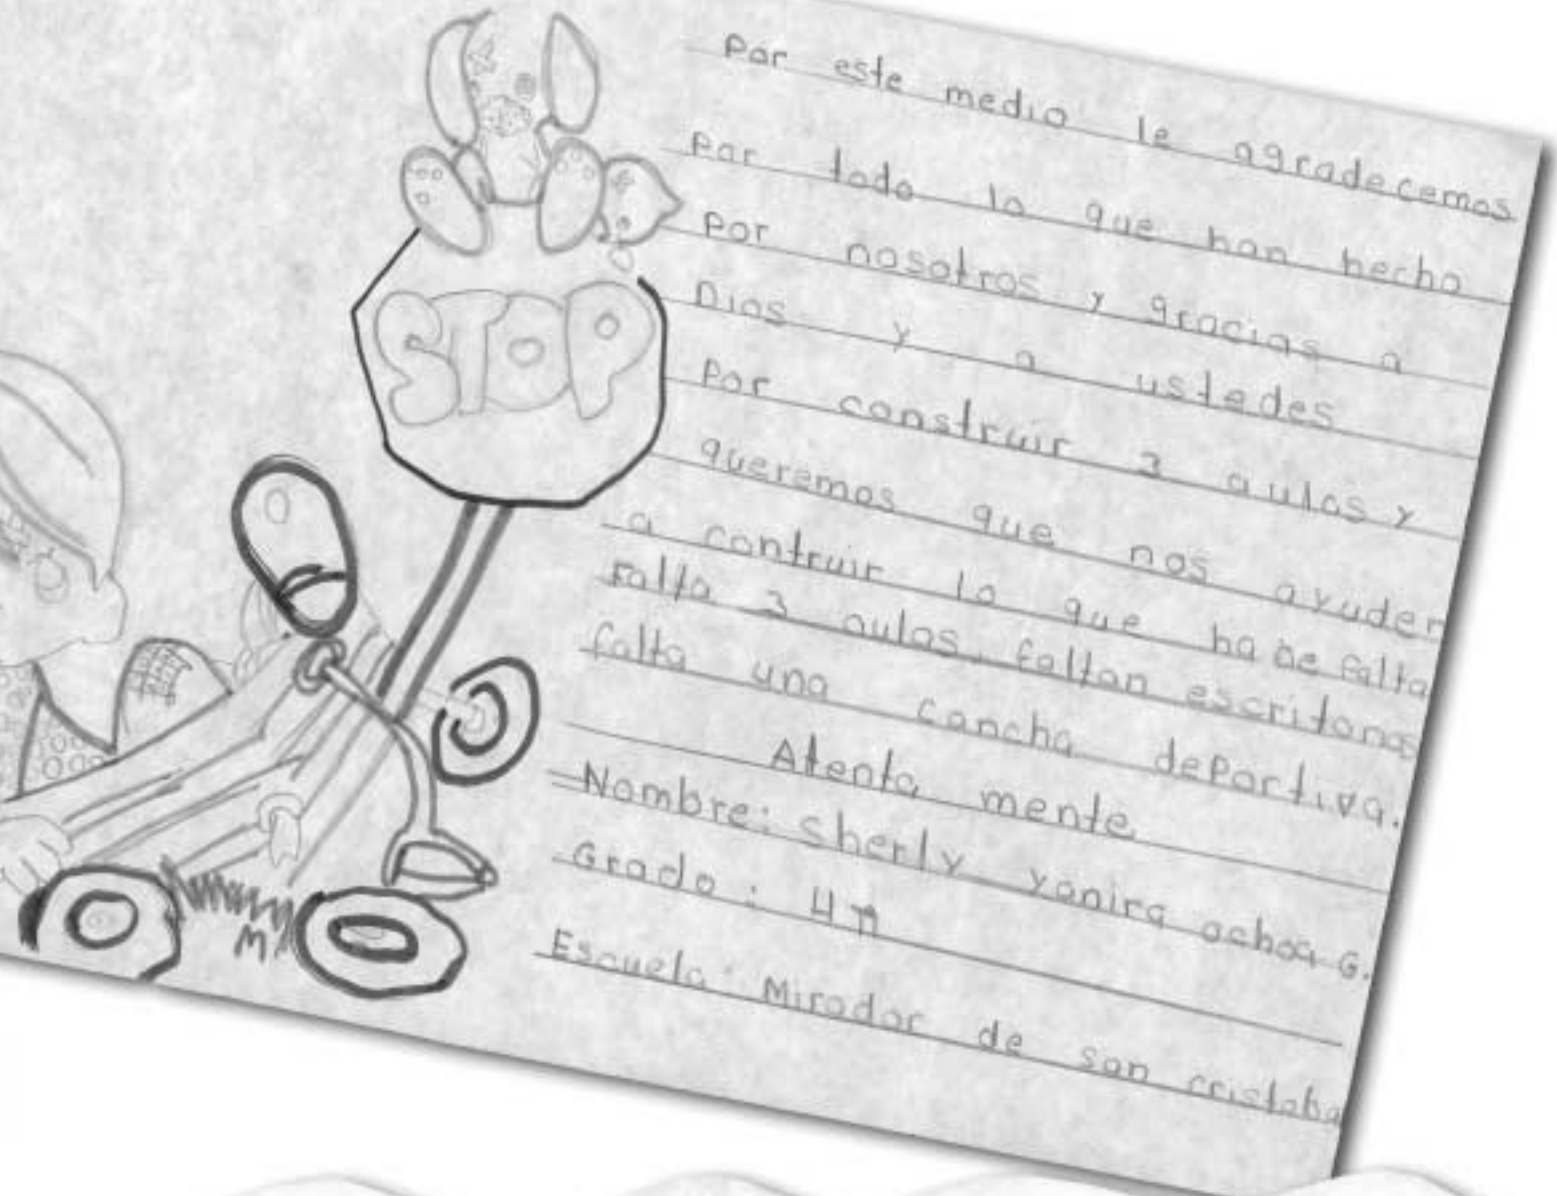 STOP
Por este medio le agradecemos
Par todo lo que han hecho
Por nosotros y gracias a
Dios y a ustedes
Por construir 3 aulas y
queremos que nos ayuden
a contruir lo que hace falta
Falta 3 aulas faltan escritorios
falta una cancha deportiva.
Atenta mente
Nombre: Sherly Yanira Ochoa G.
Grado: 4
Escuela: Mirador de san cristoba